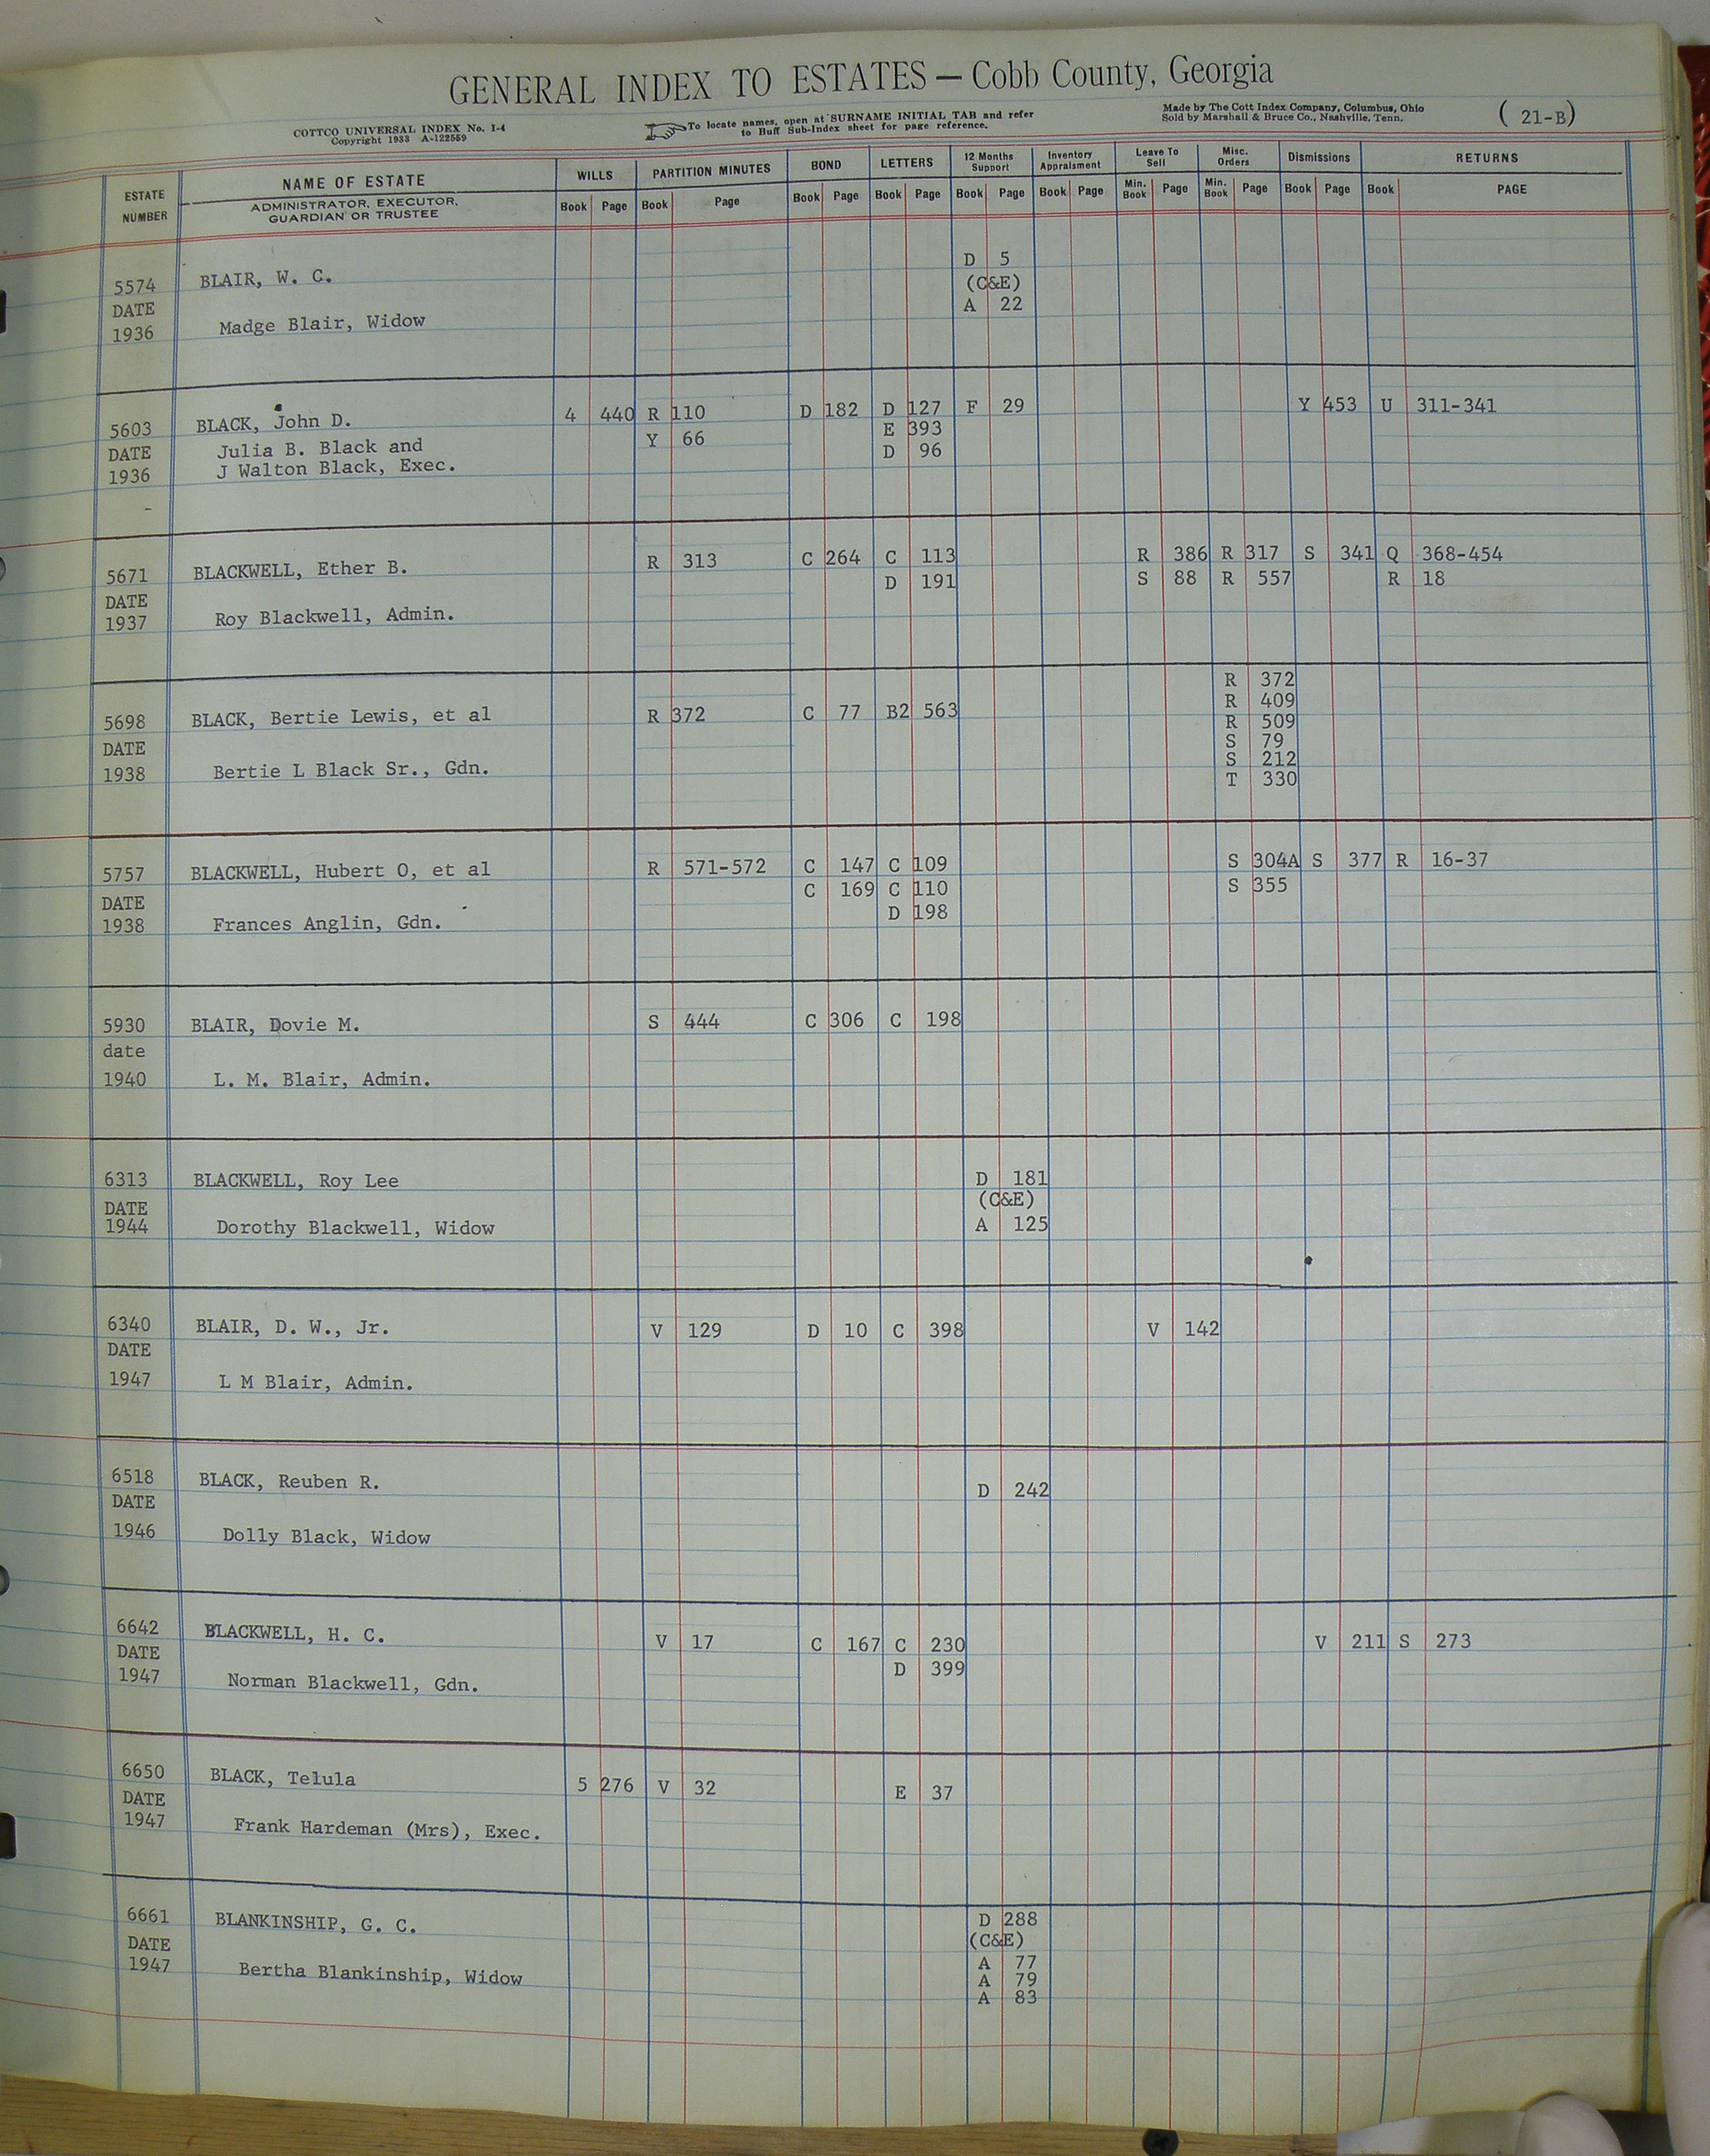 GENERAL INDEX TO ESTATES — Cobb County, Georgia
COTTCO UNIVERSAL INDEX No. I-4
Copyright 1933 A-122559
To locate names, open at SURNAME INITIAL TAB and refer
to Buff Sub-Index sheet for page reference.
Made by The Cott Index Company, Columbus, Ohio
Sold by Marshall & Bruce Co., Nashville, Tenn.
( 21-B)
ESTATE NUMBER
NAME OF ESTATE
ADMINISTRATOR, EXECUTOR,
GUARDIAN OR TRUSTEE
WILLS PARTITION MINUTES BOND LETTERS 12 Months Support Inventory Appraisment Leave To Sell Misc. Orders Dismissions RETURNS
Book Page Book Page Book Page Book Page Book Page Book Page Min. Book Page Min. Book Page Book Page Book PAGE
D 5
5574 BLAIR, W. C. (C&E)
DATE A 22
1936 Madge Blair, Widow
5603 BLACK, John D. 4 440 R 110 D 182 D 127 F 29 Y 453 U 311-341
DATE Julia B. Black and Y 66 E 393
1936 J Walton Black, Exec. D 96
5671 BLACKWELL, Ether B. R 313 C 264 C 113 R 386 R 317 S 341 Q 368-454
DATE D 191 S 88 R 557 R 18
1937 Roy Blackwell, Admin.
R 372
R 409
5698 BLACK, Bertie Lewis, et al R 372 C 77 B2 563 R 509
DATE S 79
S 212
1938 Bertie L Black Sr., Gdn. T 330
5757 BLACKWELL, Hubert O, et al R 571-572 C 147 C 109 S 304A S 377 R 16-37
DATE C 169 C 110 S 355
1938 Frances Anglin, Gdn. D 198
5930 BLAIR, Dovie M. S 444 C 306 C 198
date
1940 L. M. Blair, Admin.
6313 BLACKWELL, Roy Lee D 181
DATE (C&E)
1944 Dorothy Blackwell, Widow A 125
6340 BLAIR, D. W., Jr. V 129 D 10 C 398 V 142
DATE
1947 L M Blair, Admin.
6518 BLACK, Reuben R. D 242
DATE
1946 Dolly Black, Widow
6642 BLACKWELL, H. C. V 17 C 167 C 230 V 211 S 273
DATE D 399
1947 Norman Blackwell, Gdn.
6650 BLACK, Telula 5 276 V 32 E 37
DATE
1947 Frank Hardeman (Mrs), Exec.
6661 BLANKINSHIP, G. C. D 288
DATE (C&E)
1947 Bertha Blankinship, Widow A 77
A 79
A 83